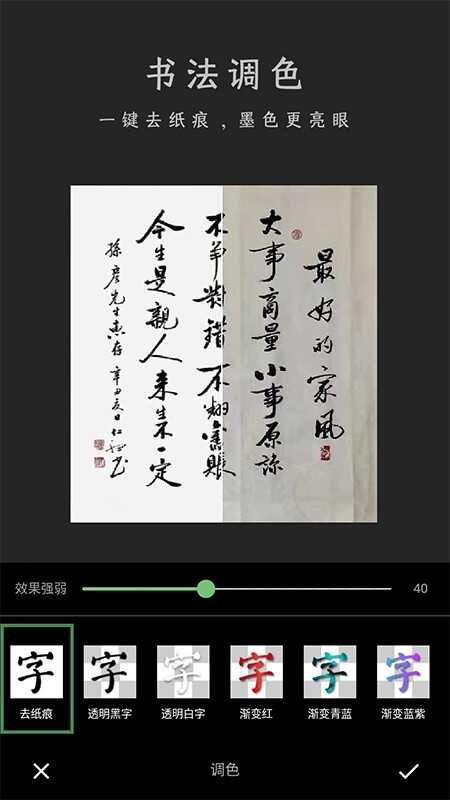 书法调色
一键去纸痕，墨色更亮眼
最好的家风
大事商量小事原谅
不争对错不翻旧賬
今生是親人来生不一定
孫彦先生惠存辛丑夏日仁
效果强弱
40
字
字
字
字
字
字
去纸痕
透明黑字
透明白字
渐变红
渐变青蓝
渐变蓝紫
调色